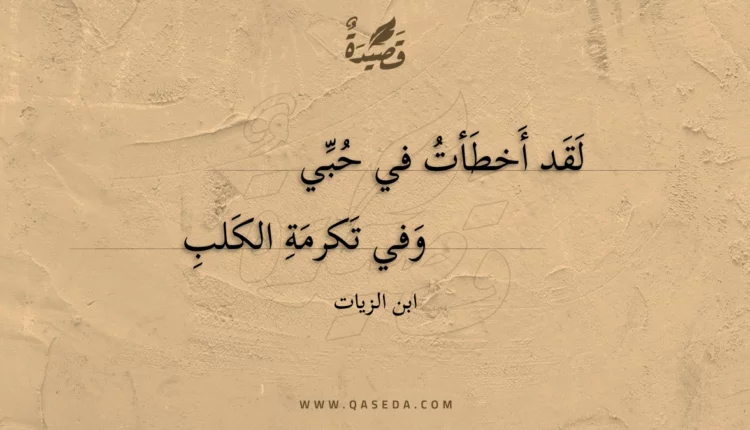 قَصِيْدَةٌ
لَقَد أَخطَأتُ في حُبِّي
وَفي تَكرمَةِ الكَلبِ
ابن الزيات
WWW.QASEDA.COM